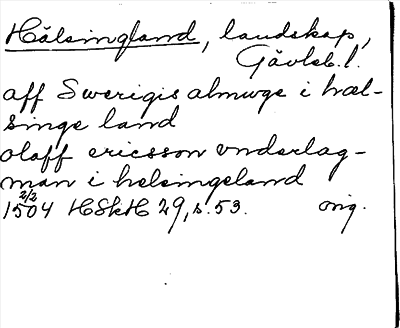 Hälsingland, landskap,
Gävleb. l.
aff Swerigis almwge i hæl-
singe land
olaff ericsson vnderlag-
man i helsingeland
2/2
1504 HSkH 29, s. 53. orig.